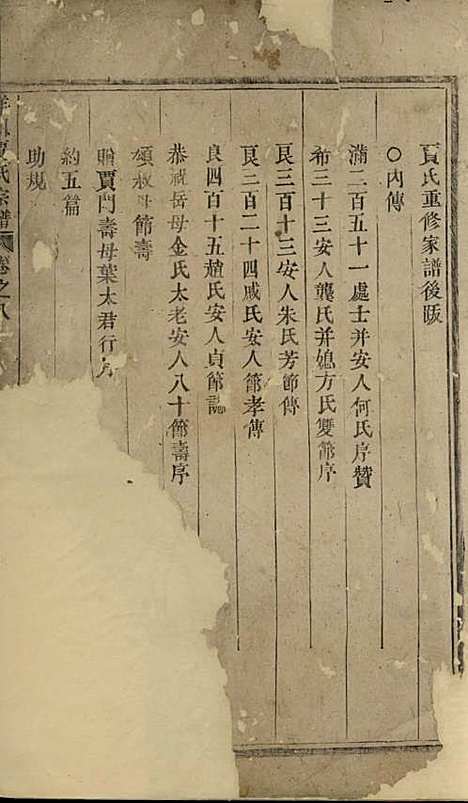 賈氏重修家譜後跋
〇內傳
滿二百五十一處士并安人何氏序贊
希三十三安人龔氏并媳方氏雙節序
艮三百十三安人朱氏芳節傳
艮三百二十四戚氏安人節孝傳
良四百十五趙氏安人貞節誌
恭祝岳母金氏太老安人八十節壽序
頌叔母節壽
贈賈門壽母葉太君行
約五篇
助規
賈氏宗譜 卷之八